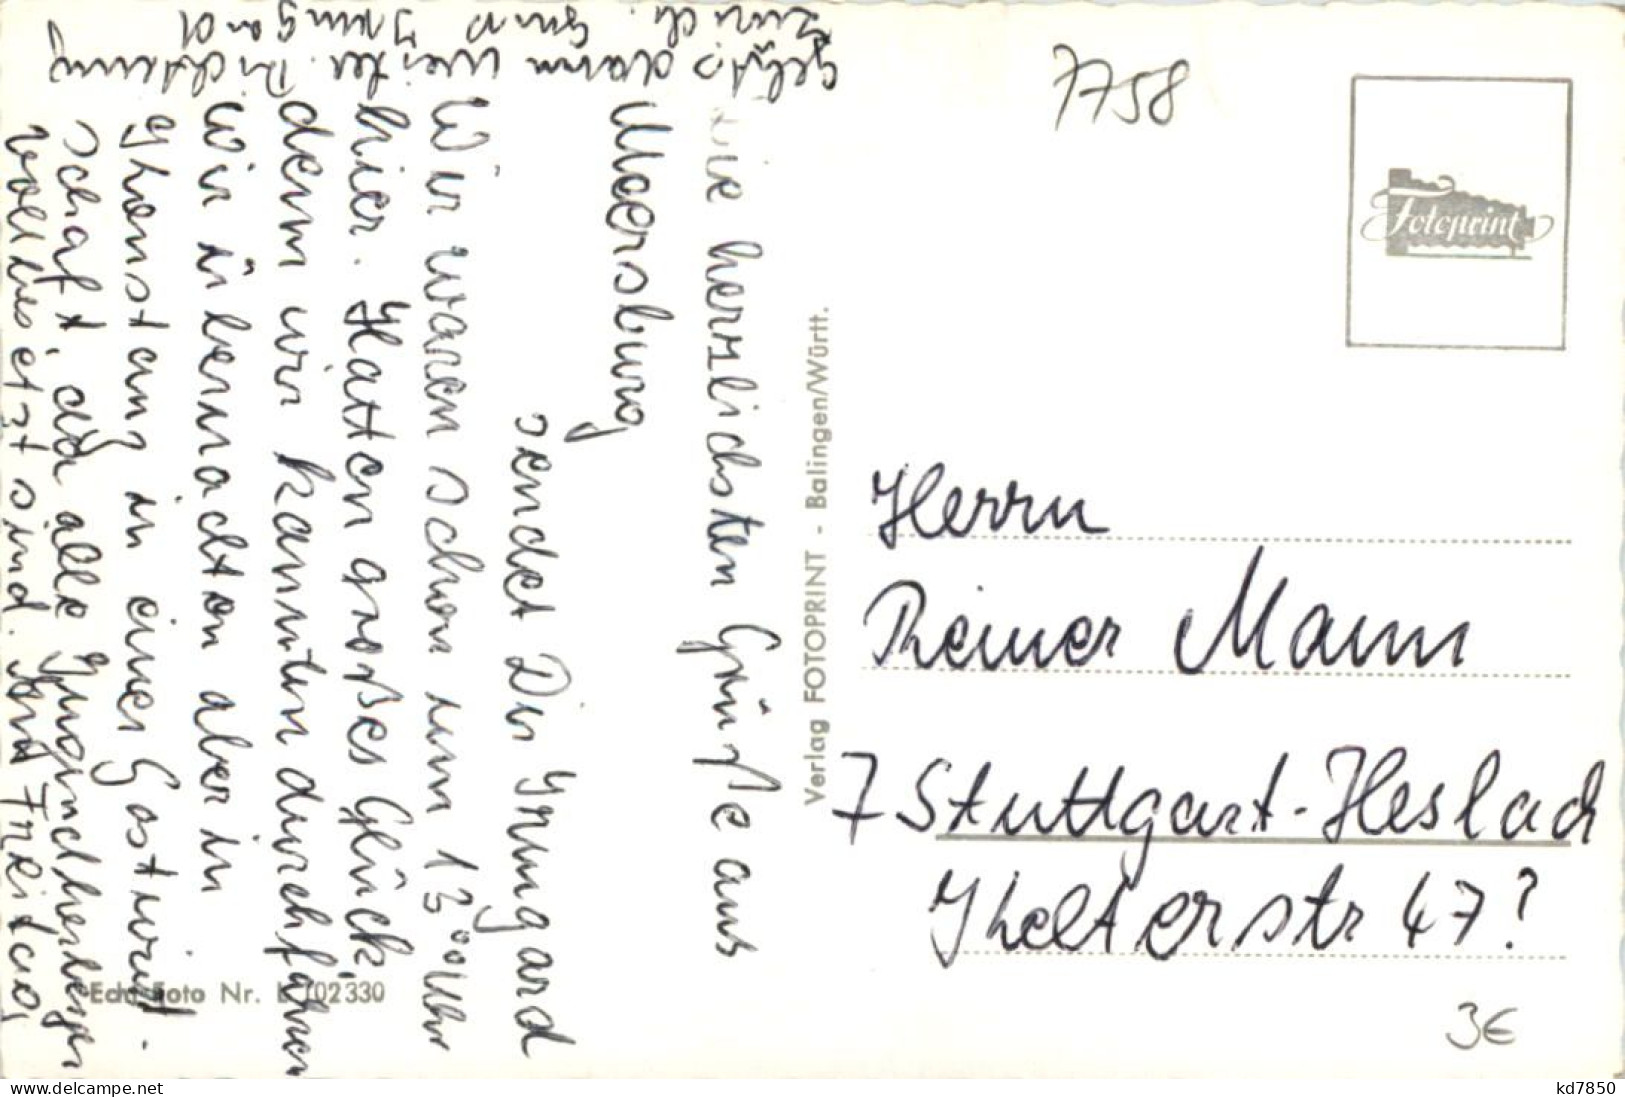 Die herzlichsten Grüße aus
Meersburg
sendet Dir Irmgard
Wir waren schon um 13⁰⁰ Uhr
hier. Hatten großes Glück,
denn wir kannten durchfahren
Wir übernachten aber in
Khonstanz in einer Gastwirt-
schaft, da alle Jugendherbergen
voll besetzt sind. Am Freitag
geht's dann weiter Richtung
Zürich. Gruß Irmgard
Verlag FOTOPRINT - Balingen/Württ.
Echt Foto Nr. L 102330
7758
Fotoprint
Herrn
Reiner Mann
7 Stuttgart-Heslach
Khelterstr 47?
3€
www.delcampe.net
kd7850